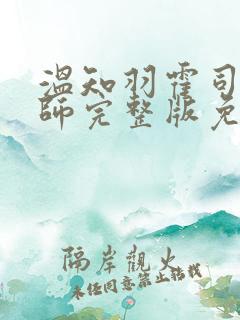 温知羽霍司
師完整版免
隔岸觀火
未经同意禁止转载